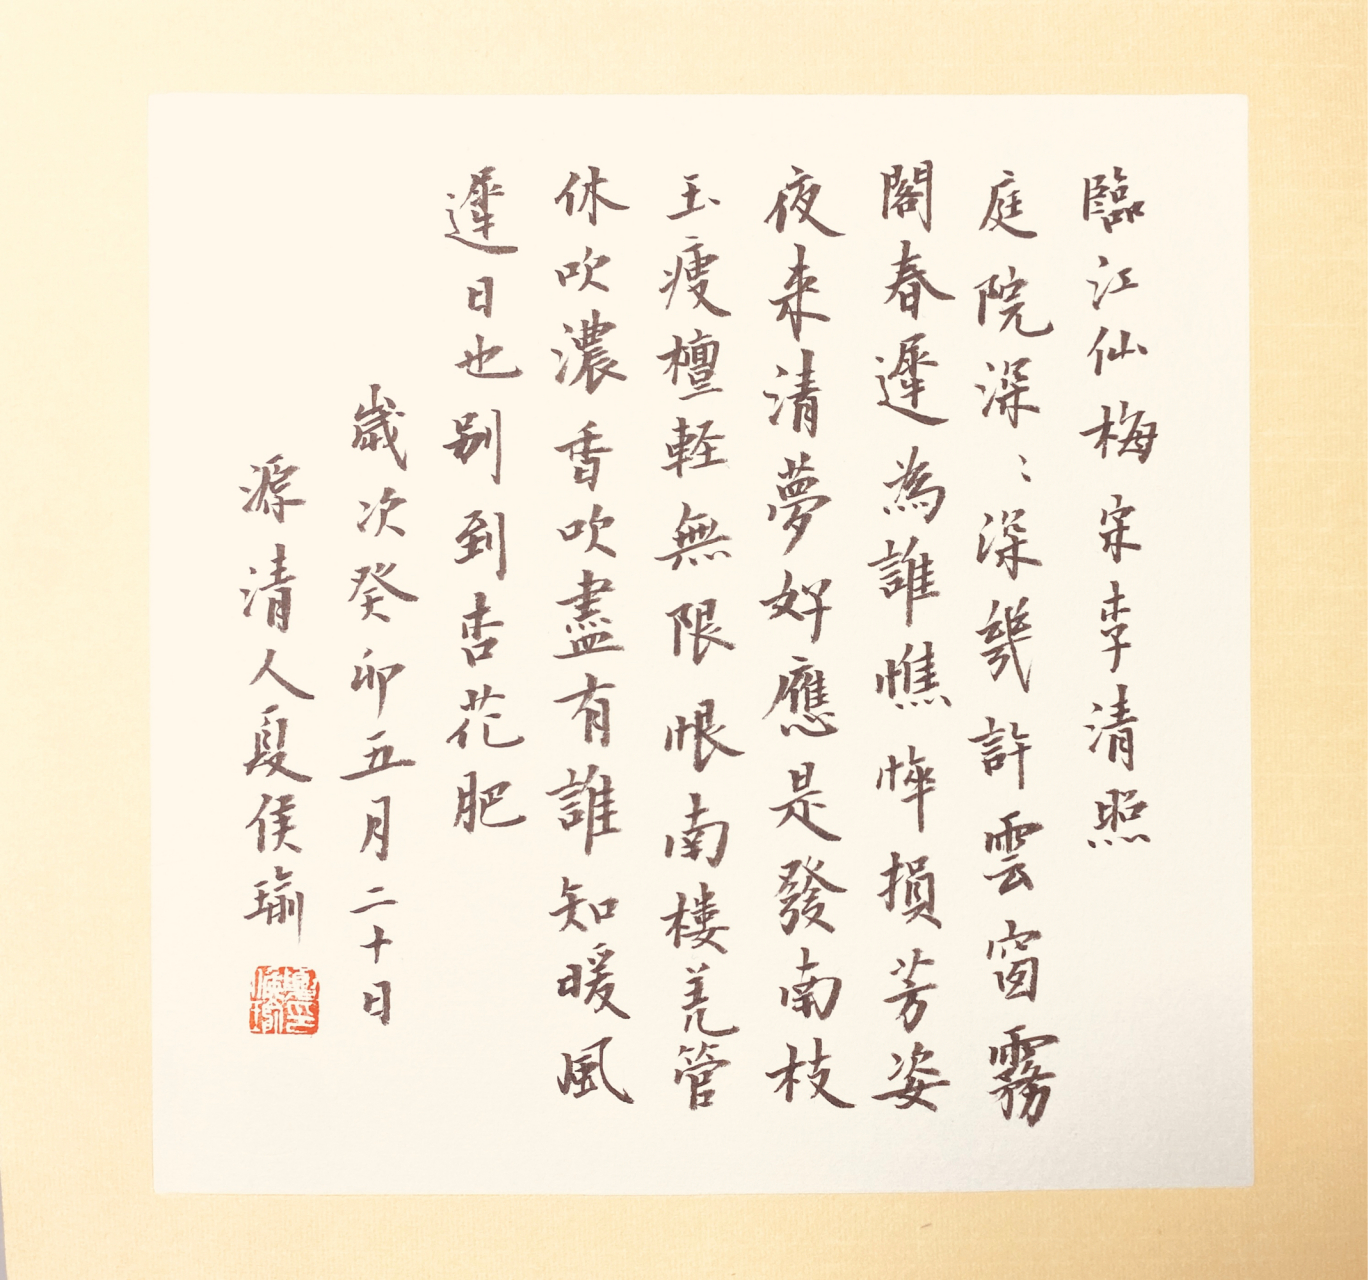 臨江仙梅宋李清照
庭院深〻深幾許雲窗霧
閣春遲為誰憔悴損芳姿
夜来清夢好應是發南枝
玉瘦檀軽無限恨南樓羌管
休吹濃香吹盡有誰知暖風
遲日也别到杏花肥
歲次癸卯五月二十日
源清人夏侯瑜